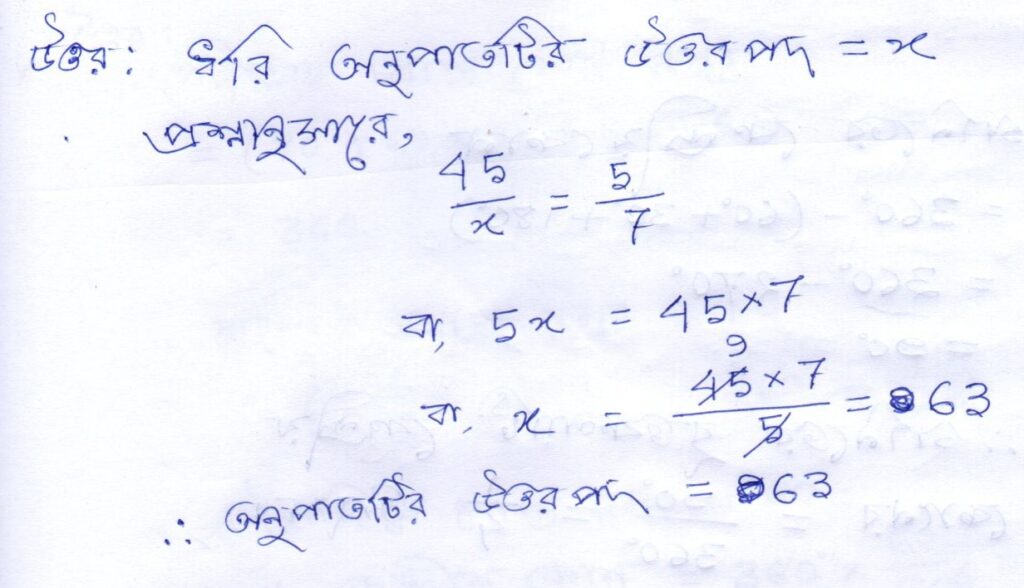 উত্তর: ধরি অনুপাতটির উত্তর পদ = x
প্রশ্নানুসারে,
45/x = 5/7
বা, 5x = 45×7
বা, x = 45×7/5 = 63
∴ অনুপাতটির উত্তর পদ = 63